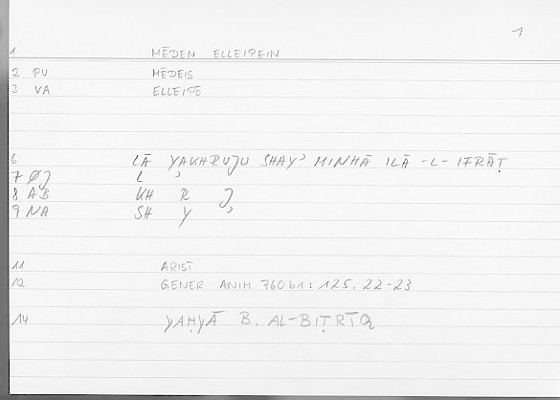 1
1 MĒDEN ELLEIPEIN
2 PU MĒDEIS
3 VA ELLEIPŌ
6 LĀ YAKHRUJU SHAYʾ MINHĀ ILĀ -L- IFRĀṬ
7 ØJ L ʾ
8 AB KH R J
9 NA SH Y ʾ
11 ARIST
12 GENER ANIM 760b1: 125.22-23
14 YAḤYĀ B. AL-BIṬRĪQ